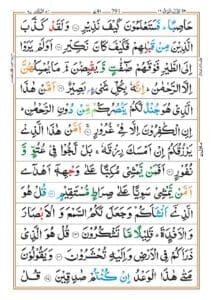 791
حَاصِبًا ؕ فَسَتَعْلَمُوْنَ كَيْفَ نَذِيْرِ ۝ وَلَقَدْ كَذَّبَ
الَّذِيْنَ مِنْ قَبْلِهِمْ فَكَيْفَ كَانَ نَكِيْرِ ۝ اَوَلَمْ يَرَوْا
اِلَى الطَّيْرِ فَوْقَهُمْ صٰٓفّٰتٍ وَّيَقْبِضْنَ ؕ مَا يُمْسِكُهُنَّ
اِلَّا الرَّحْمٰنُ ؕ اِنَّهٗ بِكُلِّ شَیْءٍۢ بَصِيْرٌ ۝ اَمَّنْ هٰذَا
الَّذِیْ هُوَ جُنْدٌ لَّكُمْ يَنْصُرُكُمْ مِّنْ دُوْنِ الرَّحْمٰنِ ؕ
اِنِ الْكٰفِرُوْنَ اِلَّا فِیْ غُرُوْرٍ ۝ اَمَّنْ هٰذَا الَّذِیْ
يَرْزُقُكُمْ اِنْ اَمْسَكَ رِزْقَهٗ ۚ بَلْ لَّجُّوْا فِیْ عُتُوٍّ وَّنُفُوْرٍ ۝
اَفَمَنْ يَّمْشِیْ مُكِبًّا عَلٰی وَجْهِهٖۤ اَهْدٰۤی
اَمَّنْ يَّمْشِیْ سَوِيًّا عَلٰی صِرَاطٍ مُّسْتَقِيْمٍ ۝ قُلْ هُوَ
الَّذِیْۤ اَنْشَاَكُمْ وَجَعَلَ لَكُمُ السَّمْعَ وَالْاَبْصَارَ
وَالْاَفْـِٕدَةَ ؕ قَلِيْلًا مَّا تَشْكُرُوْنَ ۝ قُلْ هُوَ
الَّذِیْ ذَرَاَكُمْ فِی الْاَرْضِ وَاِلَيْهِ تُحْشَرُوْنَ ۝ وَيَقُوْلُوْنَ
مَتٰی هٰذَا الْوَعْدُ اِنْ كُنْتُمْ صٰدِقِيْنَ ۝ قُلْ